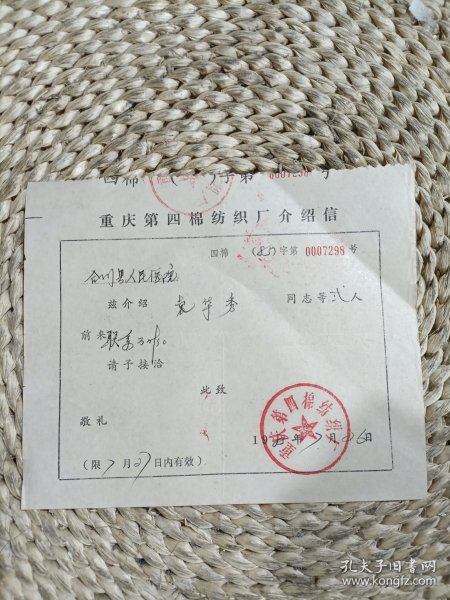 四棉 ( ) 字第 0007298 号
重庆第四棉纺织厂介绍信
四棉 ( ) 字第 0007298 号
合川县人民医院
兹介绍 袁华秀 同志等弍人
前来联系
请予接洽
此致
敬礼
重庆第四棉纺织厂
19 年7月26日
(限7月27日内有效)
孔夫子旧书网
www.kongfz.com